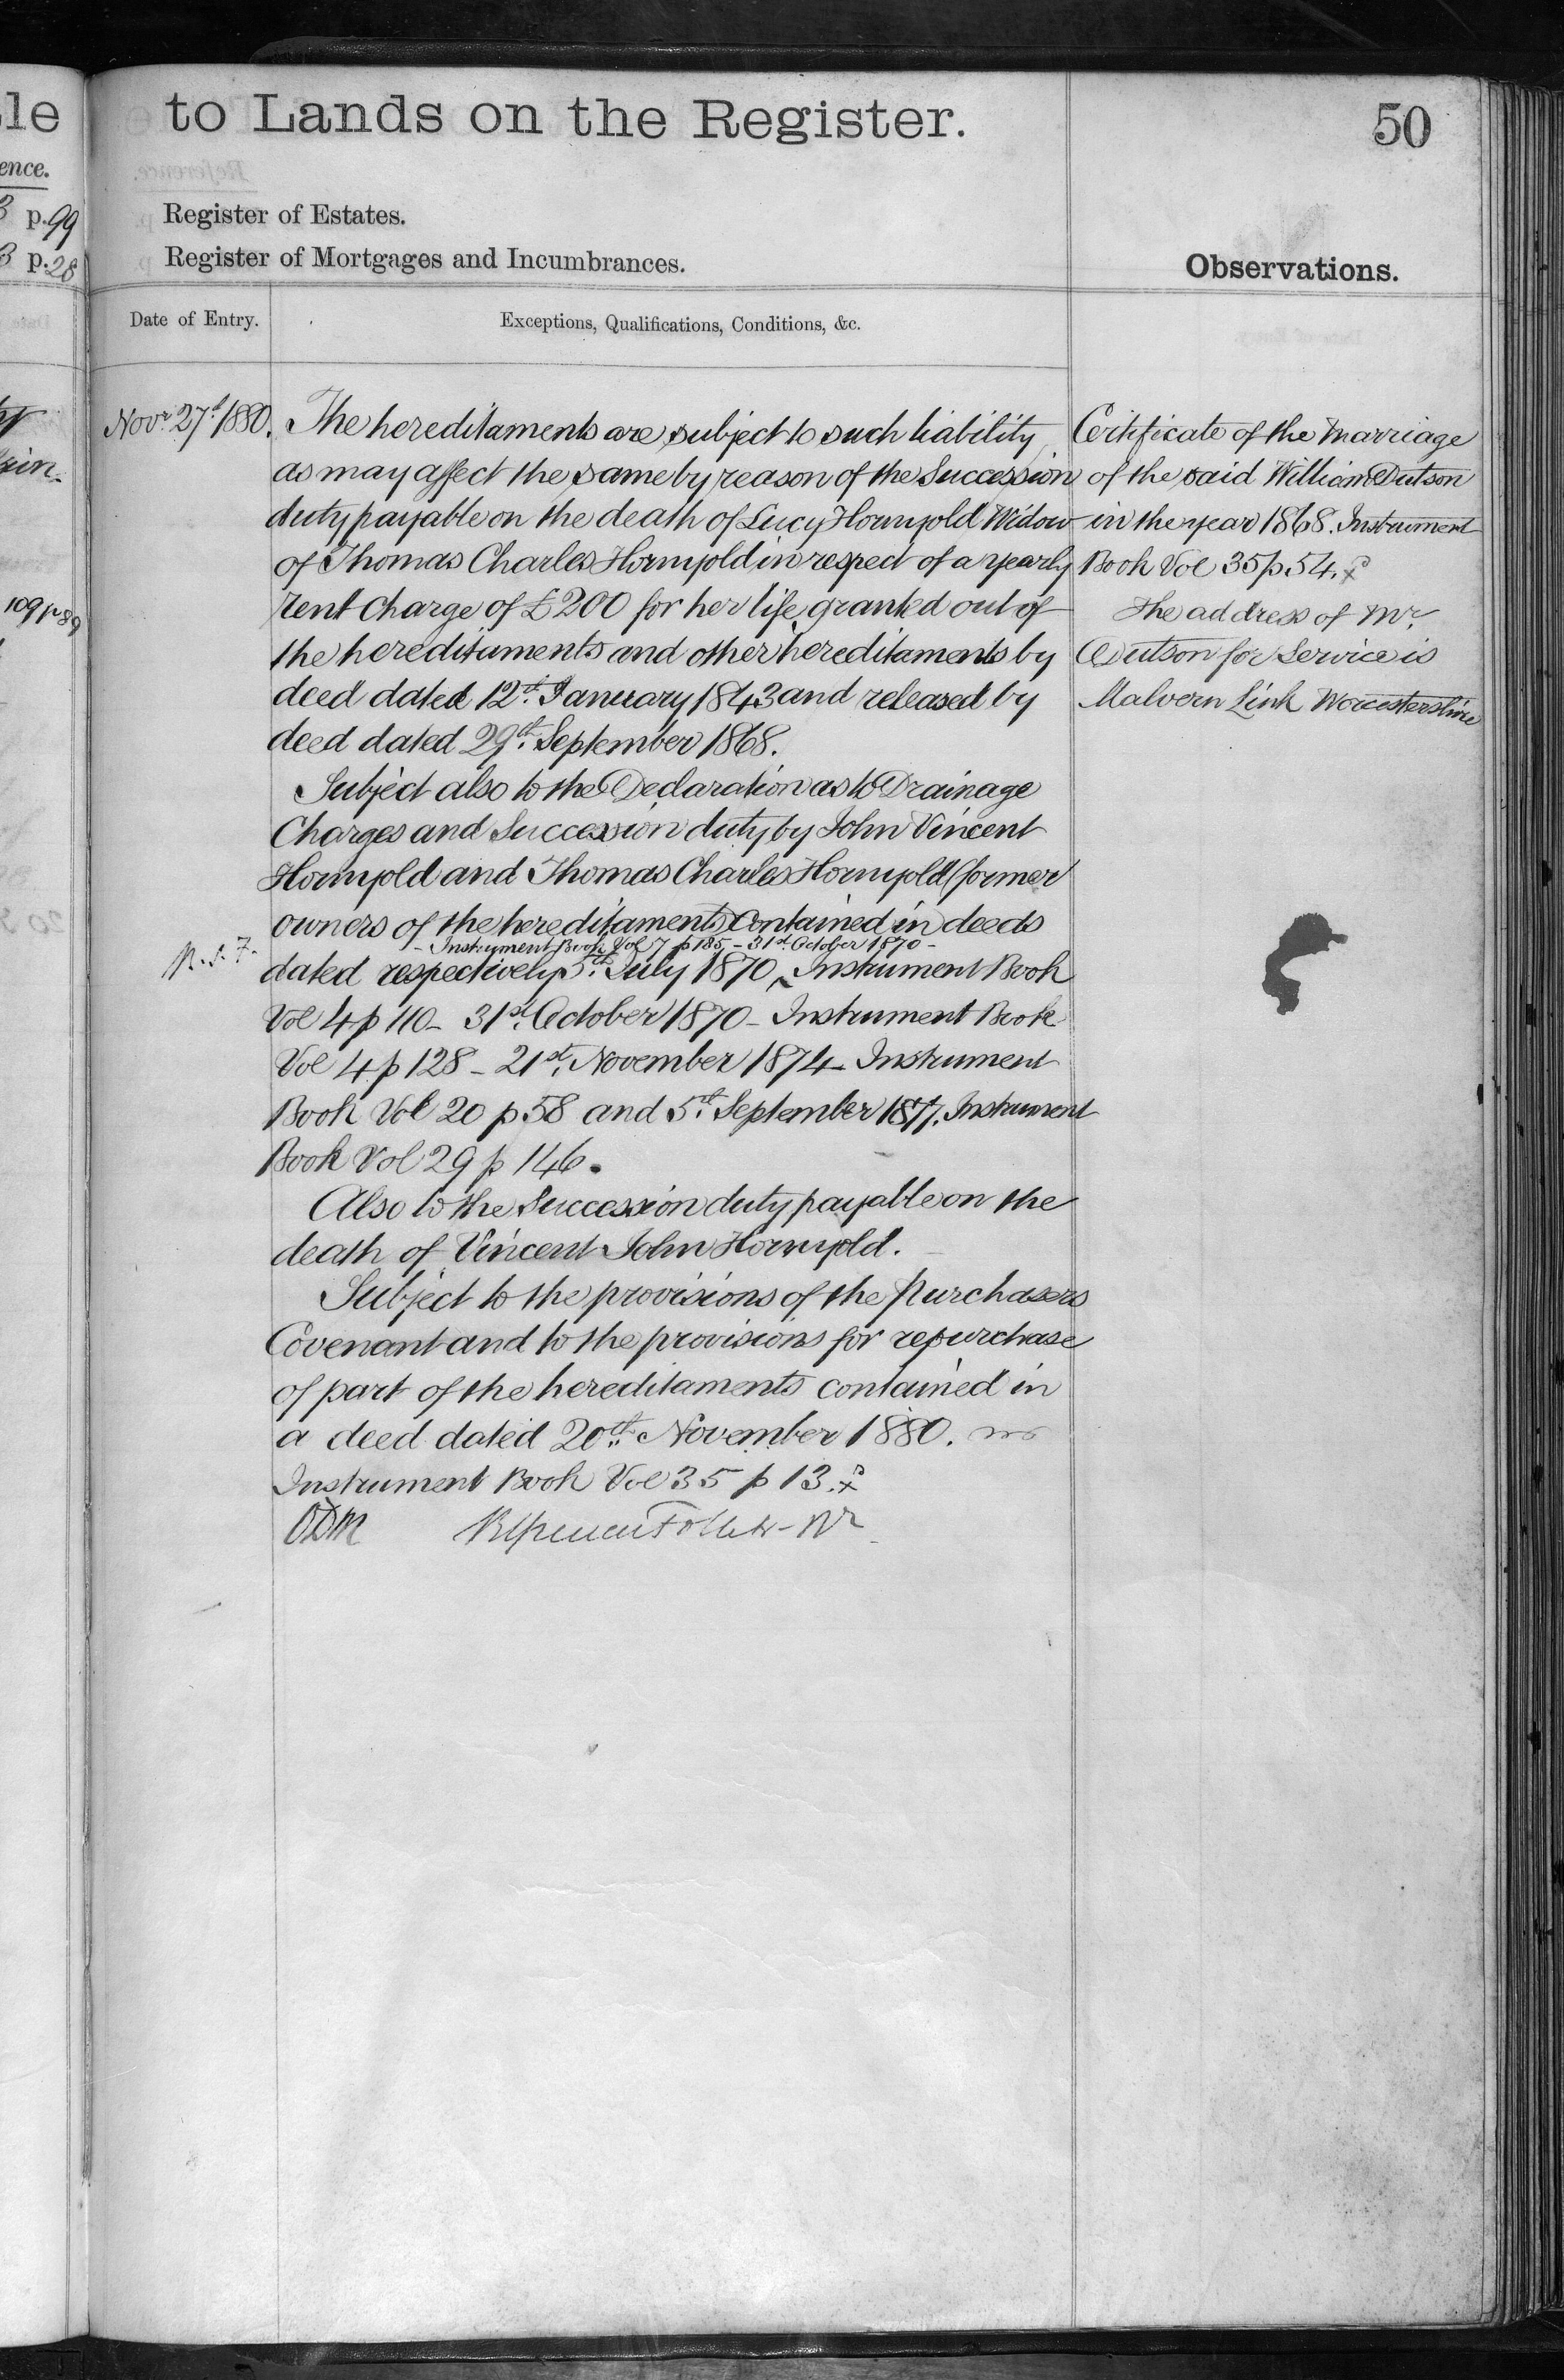 le
ence.
p. 99
p. 28
109 p 89
to Lands on the Register.
50
Register of Estates.
Register of Mortgages and Incumbrances.
Observations.
Date of Entry.
Exceptions, Qualifications, Conditions, &c.
Novr. 27th 1880.
The hereditaments are subject to such liability
as may affect the same by reason of the Succession
duty payable on the death of Lucy Hornyold Widow
of Thomas Charles Hornyold in respect of a yearly
rent charge of £200 for her life granted out of
the hereditaments and other hereditaments by
deed dated 12th. January 1843 and released by
deed dated 29th. September 1868.
Subject also to the Declaration as to Drainage
Charges and Succession duty by John Vincent
Hornyold and Thomas Charles Hornyold (former
owners of the hereditaments) contained in deeds
- Instrument Book Vol 7 p 185 - 31st. October 1870 -
dated respectively 5th. July 1870, Instrument Book
Vol 4 p 110 - 31st. October 1870 - Instrument Book
Vol 4 p 128 - 21st. November 1874 - Instrument
Book Vol 20 p 58 and 5th. September 1877. Instrument
Book Vol 29 p 146.
Also to the Succession duty payable on the
death of Vincent John Hornyold.
Subject to the provisions of the Purchasers
Covenant and to the provisions for repurchase
of part of the hereditaments contained in
a deed dated 20th. November 1880.
Instrument Book Vol 35 p 13.
Certificate of the Marriage
of the said William Dutson
in the year 1868. Instrument
Book Vol 35 p 54.
The address of Mr.
Dutson for Service is
Malvern Link Worcestershire